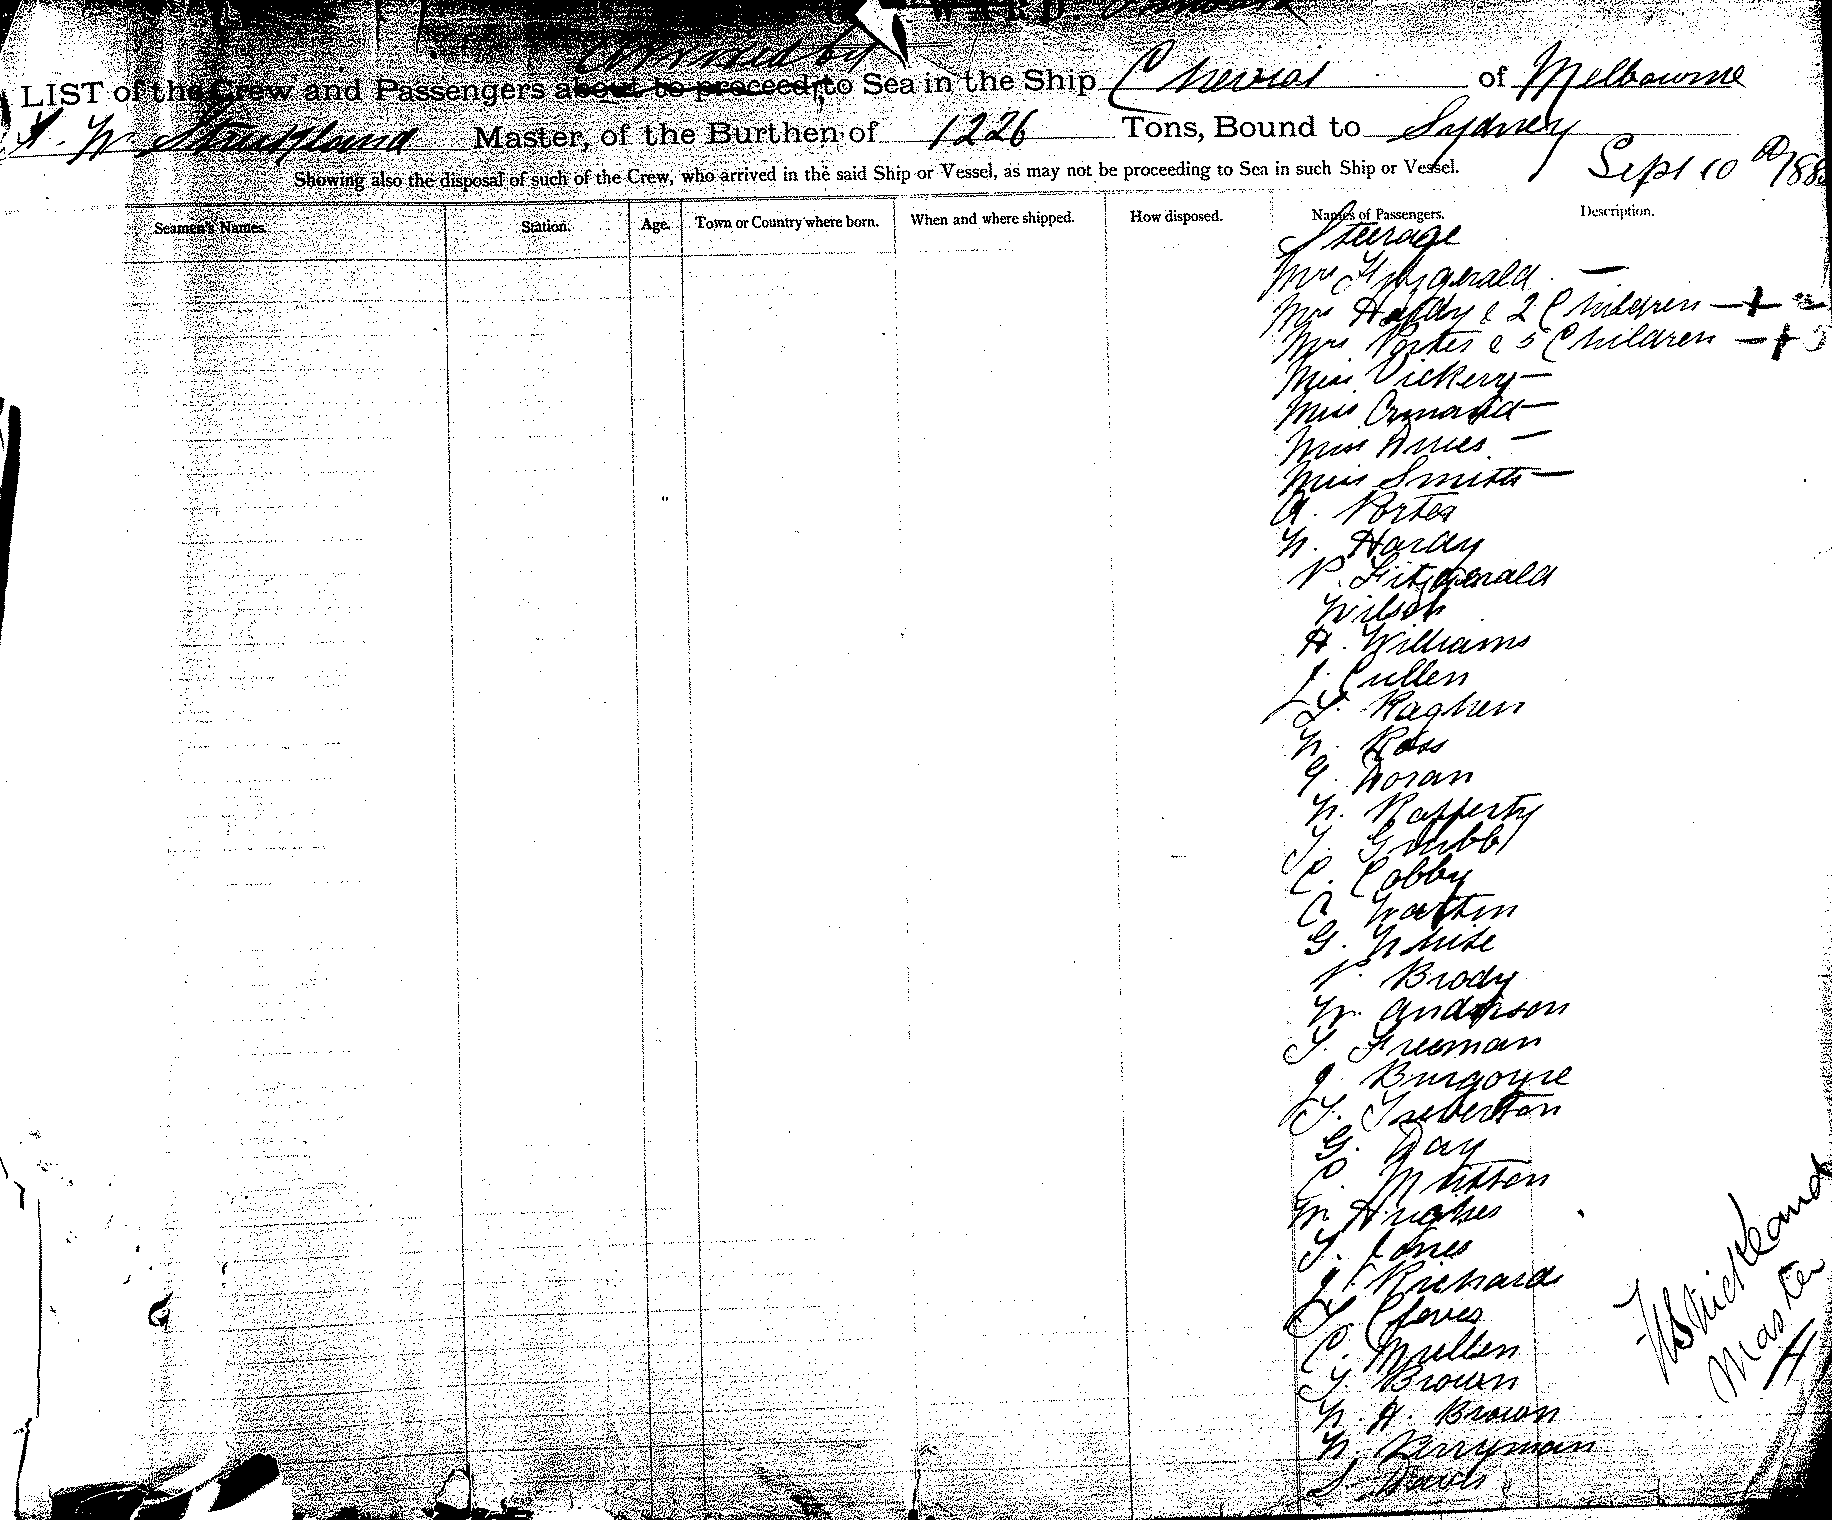 WARD
conveyed by
LIST of the Crew and Passengers about to proceed to Sea in the Ship Cheviot of Melbourne
Master, of the Burthen of 1226 Tons, Bound to Sydney
Sept 10
Showing also the disposal of such of the Crew, who arrived in the said Ship or Vessel, as may not be proceeding to Sea in such Ship or Vessel.
Seamen's Names. Station. Age. Town or Country where born. When and where shipped. How disposed. Names of Passengers. Description.
Steerage
Mrs Fitzgerald —
Mrs Hardy & 2 Children — + 2
Mrs Porter & 5 Children — + 5
Miss Vickery —
Miss —
Miss —
Miss Smith —
A. Porter
W. Hardy
P. Fitzgerald
Wilson
H. Williams
J. Cullen
Raghen
W. Ross
G. Doran
W. Rafferty
T. Grubb
C. Cobby
C.
G. White
P. Brody
W. Anderson
T. Freeman
J. Burgoyne
T. Treberton
G. Day
C. Mutton
W. Hughes
T. Jones
J. Richards
C. Mullen
T. Brown
W. H. Brown
W. Berryman
S. Davis
Strickland
Master